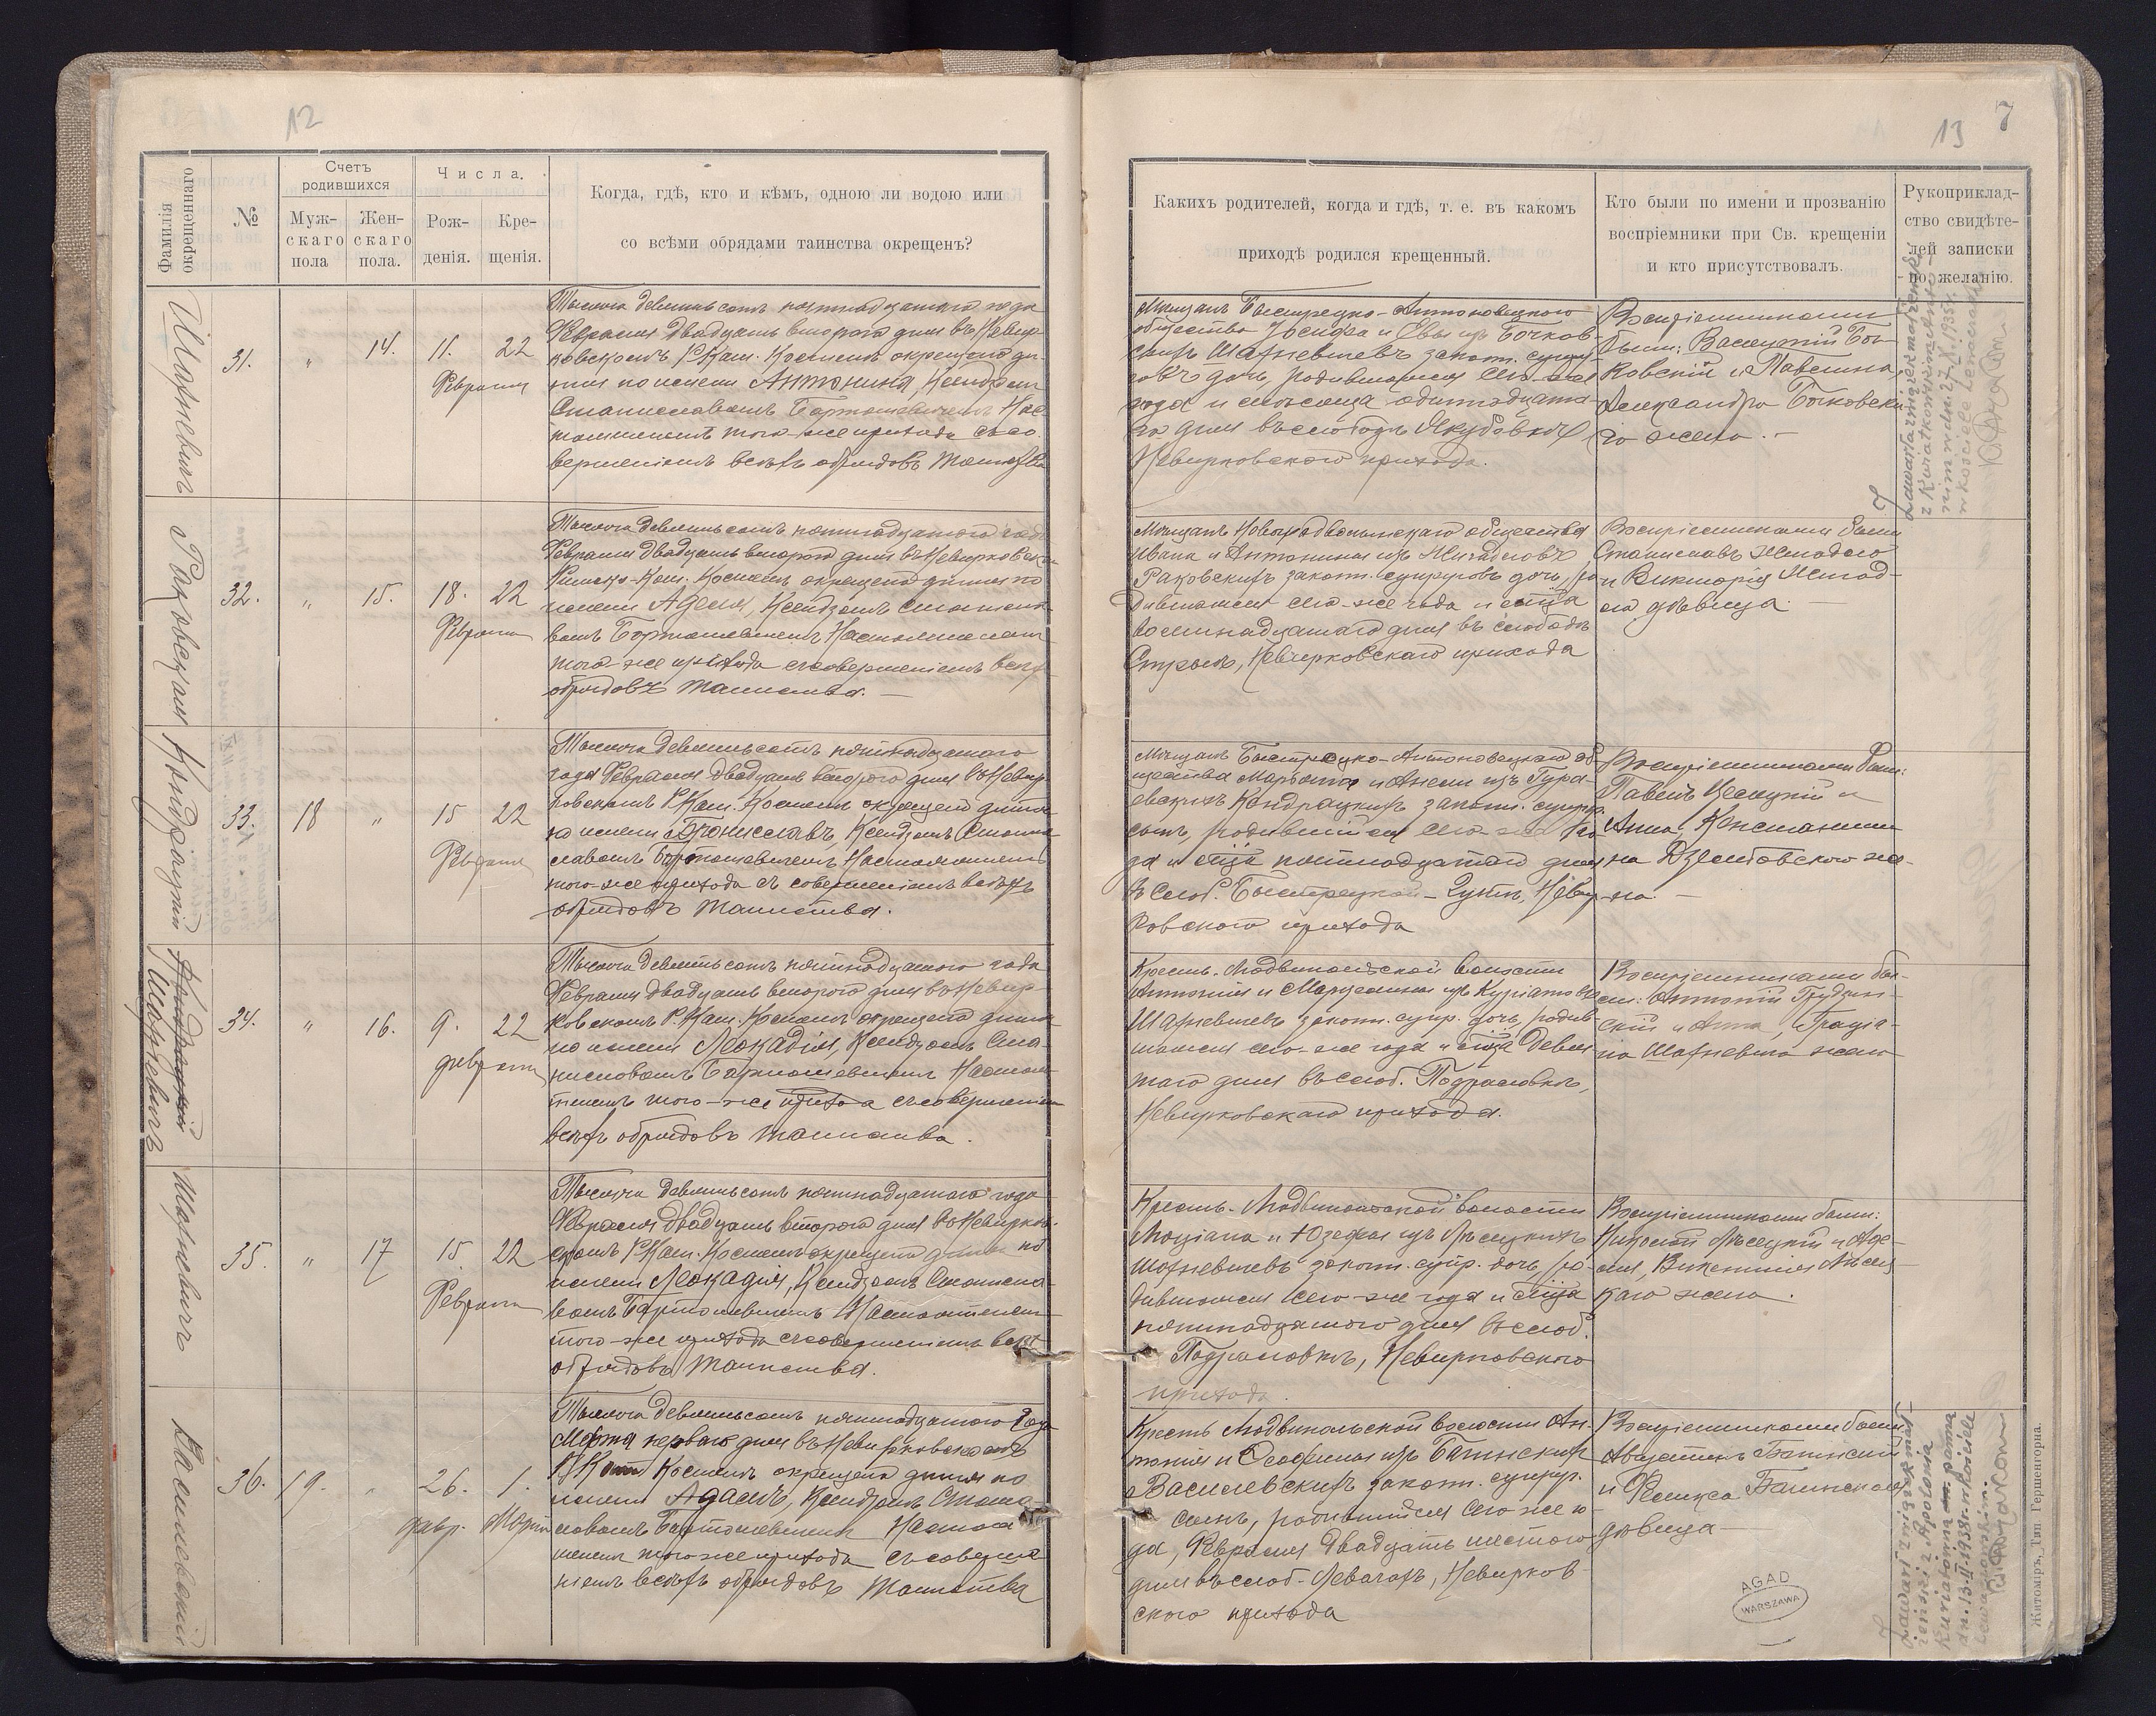 12
13
7
Фамилія окрещеннаго
№
Счетъ родившихся
Муж-
скаго
пола
Жен-
скаго
пола.
Числа.
Рож-
денія.
Кре-
щенія.
Когда, гдѣ, кто и кѣмъ, одною ли водою или
со всѣми обрядами таинства окрещенъ?
Какихъ родителей, когда и гдѣ, т. е. въ какомъ
приходѣ родился крещенный.
Кто были по имени и прозванію
воспріемники при Св. крещеніи
и кто присутствовалъ.
Рукоприклад-
ство свидѣте-
лей записки
по желанію.
Шахневичъ
31. " 14. 11. 22
Февраля
Тысяча девятьсотъ пятнадцатаго года
Февраля двадцать второго дня въ Невир-
ковскомъ Р.Кат. Костелѣ окрещено ди-
тя по имени Антонина, Ксендзомъ
Станиславомъ Бартошевичемъ Нас-
тоятелемъ того-же прихода съ со-
вершеніемъ всѣхъ обрядовъ Таинства
Мѣщанъ Быстрецко-Антоновецкого
общества Іосифа и Евы изъ Бочков-
скихъ Шахневичевъ законн. супру-
говъ дочь, родившаяся сего-же
года и мѣсяца одиннадцата-
го дня въ слободѣ Якубовкѣ
Невирковского прихода.
Воспріемниками
были: Валентій Боч-
ковский и Павлина,
Александра Бочковска-
го жена. -
Zawarła związek małżeński
z Kuriatkowskim
nim w dn. 27.X.1935 r.
w kościele
Раковская
32. " 15. 18. 22
Февраля
Тысяча девятьсотъ пятнадцатого года
Февраля двадцать второго дня въ Невирковском
Римско-Кат. Костелѣ окрещено дитя по
имени Аделя, Ксендзомъ Станисла-
вомъ Бартошевичемъ Настоятелемъ
того-же прихода съ совершеніемъ всѣхъ
обрядовъ Таинства. -
Мѣщанъ Новоградволынскаго общества
Ивана и Антонины изъ
Раковскихъ законн. супруговъ дочь, ро-
дившаяся сего-же года и м-ца
восемнадцатаго дня въ слободѣ
Невирковскаго прихода
Воспріемниками были
Станиславъ
и Викторія
дѣвица -
Кондрацкій
33. 18 " 15 22
Февраля
Тысяча девятьсотъ пятнадцатого
года Февраля двадцать второго дня въ Невир-
ковскомъ Р.Кат. Костелѣ окрещено дитя
по имени Брониславъ, Ксендзомъ Станис-
лавомъ Бартошевичемъ Настоятелемъ
того-же прихода съ совершеніемъ всѣхъ
обрядовъ Таинства.
Мѣщанъ Быстрецко-Антоновецкаго об-
щества Мартина и Анели изъ Гура-
евскихъ Кондрацкихъ законн. супруг.
сынъ, родившійся сего-же го-
да и м-ца пятнадцатаго дня
въ слоб. Быстрецкой-Гутѣ, Невир-
ковского прихода
Воспріемниками были:
Павелъ и
Анна, Константи-
на же-
на -
Кондрацкій
Шахневичъ
34. " 16. 9. 22
февраля
Тысяча девятьсотъ пятнадцатого года
Февраля двадцать второго дня въ Невир-
ковскомъ Р.Кат. Костелѣ окрещено дитя
по имени Леокадія, Ксендзомъ Ста-
ниславомъ Бартошевичемъ Настоя-
телемъ того-же прихода съ совершеніем
всѣхъ обрядовъ Таинства.
Крестьянъ Людвипольской волости
Антонія и Марцелины изъ Куріатовъ
Шахневичевъ законн. супр. дочь, родив-
шаяся сего-же года и м-ца девя-
таго дня въ слоб.
Невирковскаго прихода.
Воспріемниками бы-
ли: Антоній Грудзин-
скій и Анна, Граціа-
на Шахневича жена
Шахневичъ
35. " 17 15 22
Февраля
Тысяча девятьсотъ пятнадцатаго года
Февраля двадцать второго дня въ Невирков-
скомъ Р.Кат. Костелѣ окрещено дитя по
имени Леокадія, Ксендзомъ Станисла-
вомъ Бартошевичемъ Настоятелемъ
того-же прихода съ совершеніемъ всѣхъ
обрядовъ Таинства.
Крестьянъ Людвипольской волости
Люціана и Юзефы изъ Лѣсецкихъ
Шахневичевъ законн. супр. дочь, ро-
дившаяся сего-же года и м-ца
пятнадцатого дня въ слоб.
Невирковского
прихода.
Воспріемниками были:
Лѣсецкій и Аде-
ля, Викентія Лѣсец-
каго жена.
Василевскій
36. 19. " 26. 1.
февр. Марта
Тысяча девятьсотъ пятнадцатого года
Марта перваго дня въ Невирковскомъ
Р.Кат. Костелѣ окрещено дитя по
имени Адамъ, Ксендзомъ Станис-
лавомъ Бартошевичемъ Настоя-
телемъ того-же прихода съ соверше-
ніемъ всѣхъ обрядовъ Таинства
Крестьянъ Людвипольской волости Ан-
тонія и Стефаніи изъ Багинскихъ
Василевскихъ законн. супруг.
сынъ, родившійся сего же го-
да, Февраля двадцать шестого
дня въ слоб. Левачахъ, Невирков-
ского прихода
Воспріемниками были
Августинъ Багинскій
и Феликса Багинская
дѣвица -
Zawarł związek mał-
żeński z Apolonią
Kuriatówną panną
dn. 13.II.1938 r. w kościele
AGAD
WARSZAWA
Житоміръ, Тип. Гершенгорна.